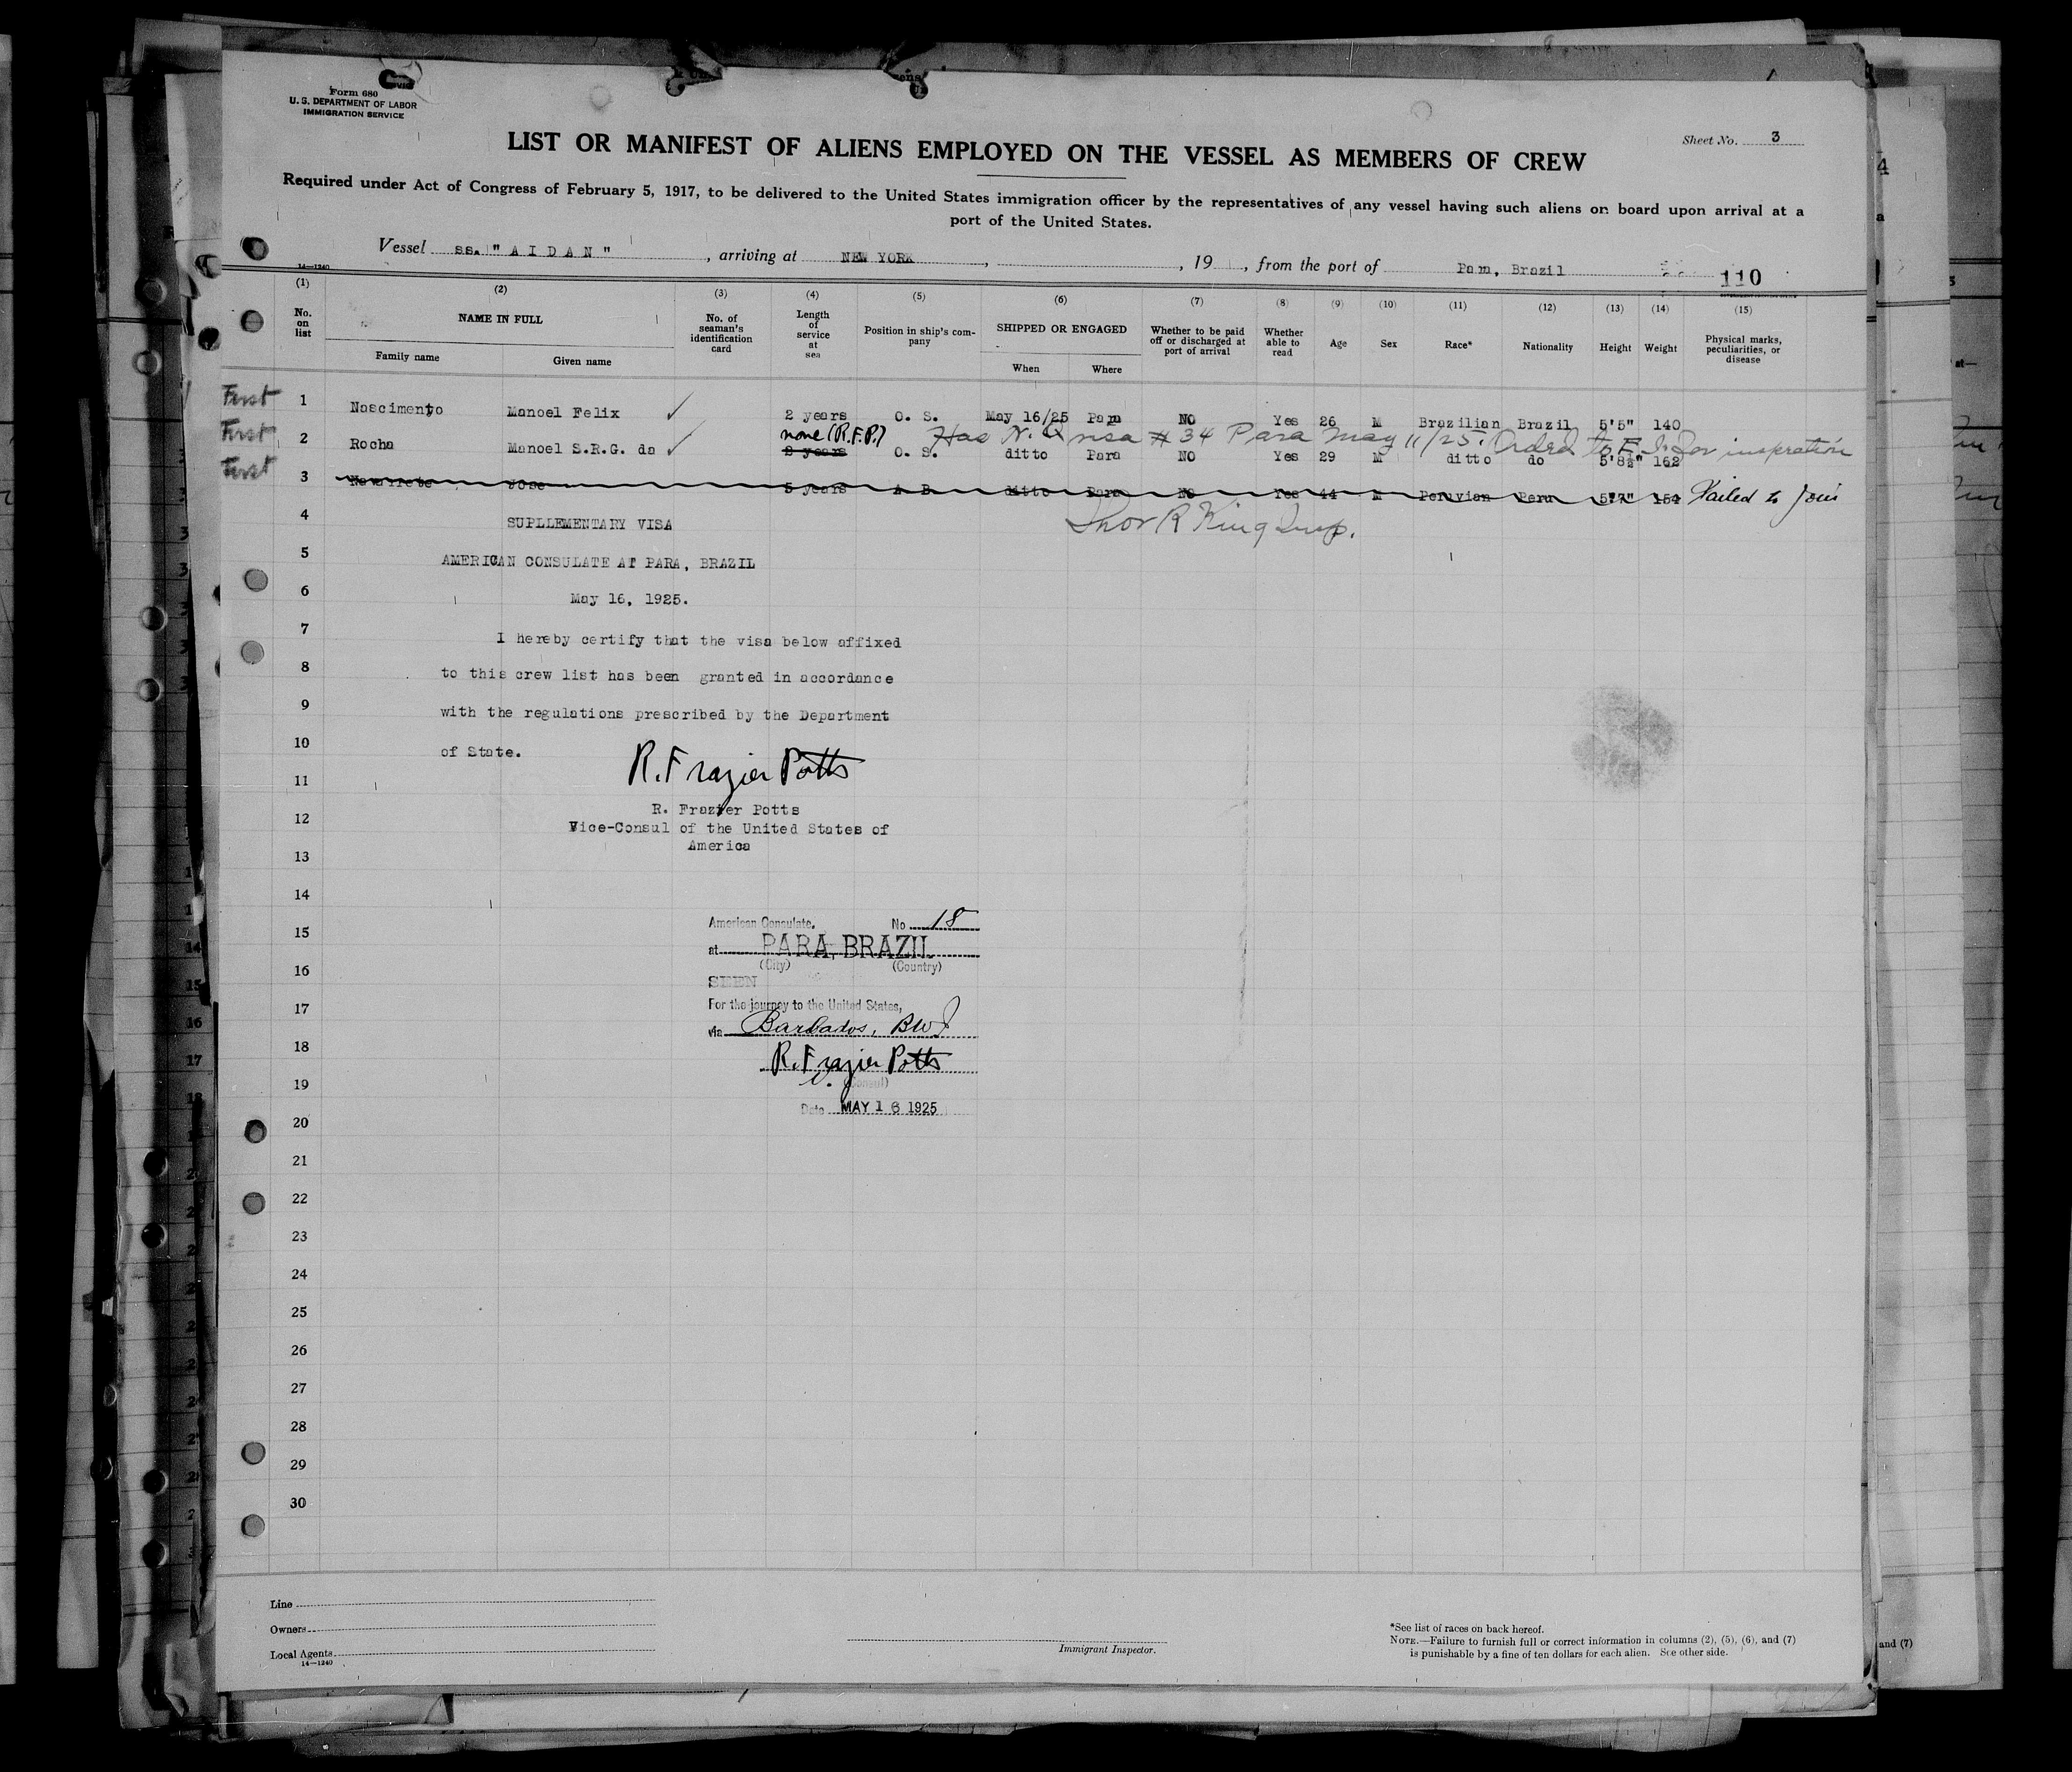 Form 680
U. S. DEPARTMENT OF LABOR
IMMIGRATION SERVICE
Sheet No. 3
LIST OR MANIFEST OF ALIENS EMPLOYED ON THE VESSEL AS MEMBERS OF CREW
Required under Act of Congress of February 5, 1917, to be delivered to the United States immigration officer by the representatives of any vessel having such aliens on board upon arrival at a
port of the United States.
Vessel ss. "AIDAN", arriving at NEW YORK, 19 , from the port of Para, Brazil
14—1240
110
(1) (2) (3) (4) (5) (6) (7) (8) (9) (10) (11) (12) (13) (14) (15)
No. on list
NAME IN FULL
Family name
Given name
No. of seaman's identification card
Length of service at sea
Position in ship's company
SHIPPED OR ENGAGED
When
Where
Whether to be paid off or discharged at port of arrival
Whether able to read
Age
Sex
Race*
Nationality
Height
Weight
Physical marks, peculiarities, or disease
First 1 Nascimento Manoel Felix ✓ 2 years O. S. May 16/25 Para NO Yes 26 M Brazilian Brazil 5'5" 140
none (R.F.P.) Has N. Q visa # 34 Para May 11/25. Ordered to E. I. for inspection
First 2 Rocha Manoel S.R.G. da ✓ 2 years O. S. ditto Para NO Yes 29 M ditto do 5'8½" 162
First 3 Navarrete Jose 5 years A B ditto Para NO Yes 44 M Peruvian Peru 5'7" 154 Failed to Join
4 SUPLLEMENTARY VISA
Thor R King Insp.
5 AMERICAN CONSULATE AT PARA, BRAZIL
6 May 16, 1925.
7 I hereby certify that the visa below affixed
8 to this crew list has been granted in accordance
9 with the regulations prescribed by the Department
10 of State.
R. Frazier Potts
11
R. Frazier Potts
12 Vice-Consul of the United States of
America
13
14
American Consulate, No 18
15
at PARA, BRAZIL
(City) (Country)
16
SEEN
17 For the journey to the United States,
via Barbados, BWI
18
R. Frazier Potts
19 V. (Consul)
Date MAY 16 1925
20
21
22
23
24
25
26
27
28
29
30
Line
Owners
Local Agents
14—1240
Immigrant Inspector.
*See list of races on back hereof.
NOTE.—Failure to furnish full or correct information in columns (2), (5), (6), and (7)
is punishable by a fine of ten dollars for each alien. See other side.
and (7)